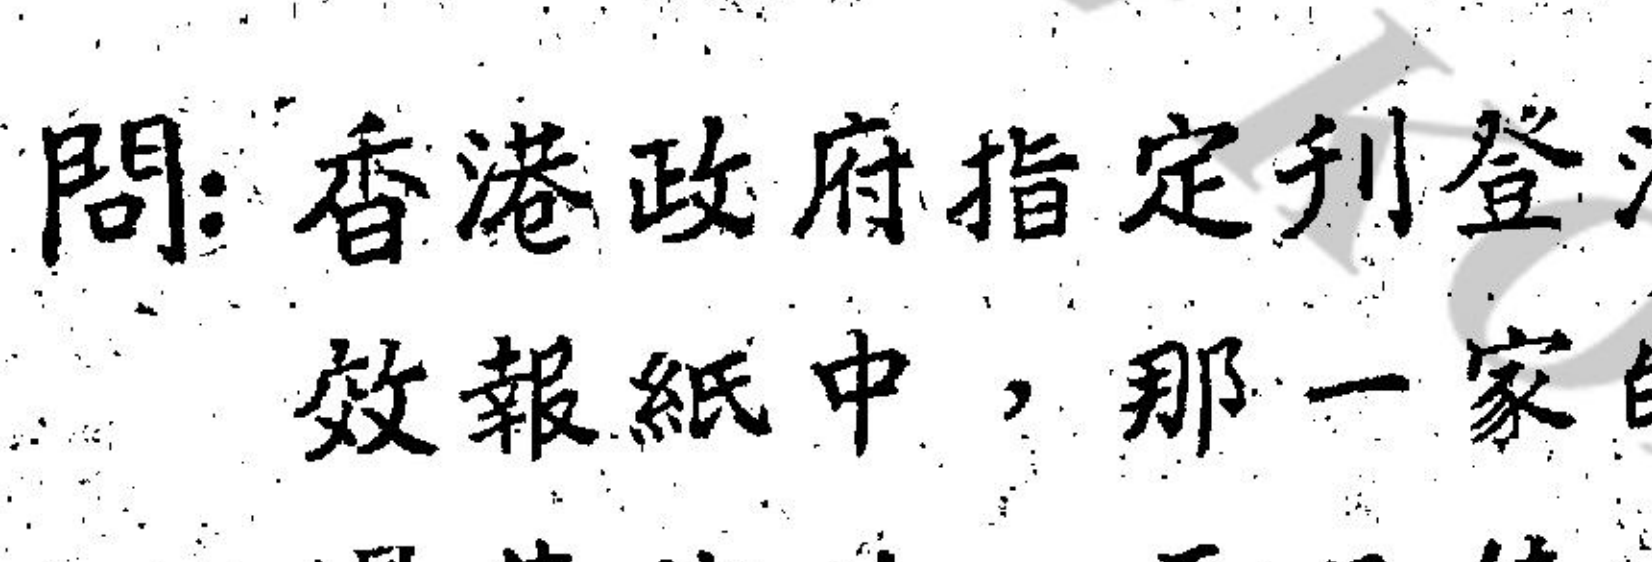 問：香港政府指定刊登
效報紙中，那一家